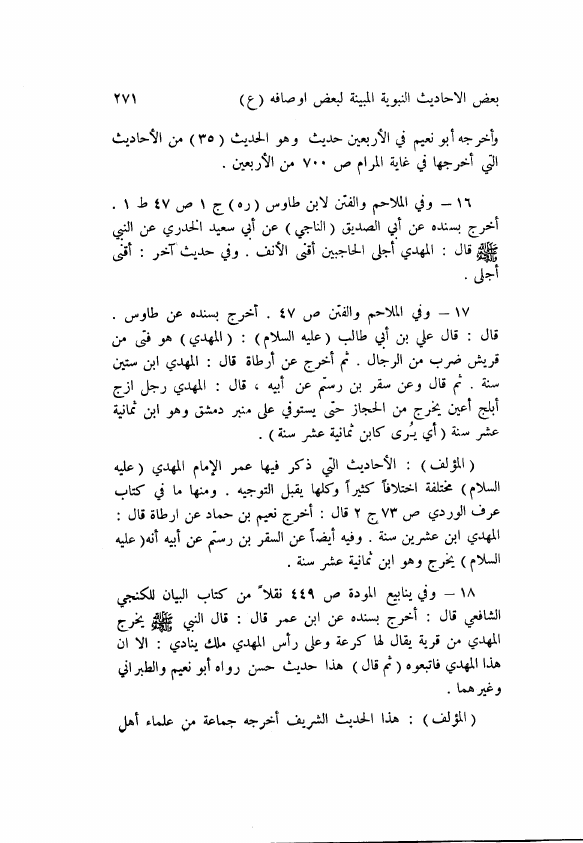 بعض الاحاديث النبوية المبينة لبعض اوصافه (ع) ٢٧١
وأخرجه أبو نعيم في الأربعين حديث وهو الحديث (٣٥) من الأحاديث
التي أخرجها في غاية المرام ص ٧٠٠ من الأربعين .
١٦ – وفي الملاحم والفتن لابن طاوس (ره) ج ١ ص ٤٧ ط ١ .
أخرج بسنده عن أبي الصديق (الناجي) عن أبي سعيد الخدري عن النبي
ﷺ قال : المهدي أجلى الحاجبين أقنى الأنف . وفي حديث آخر : أقنى
أجلى .
١٧ – وفي الملاحم والفتن ص ٤٧ . أخرج بسنده عن طاوس .
قال : قال علي بن أبي طالب (عليه السلام) : (المهدي) هو فتى من
قريش ضرب من الرجال . ثم أخرج عن أرطاة قال : المهدي ابن ستين
سنة . ثم قال وعن سقر بن رستم عن أبيه ، قال : المهدي رجل ازج
أبلج أعين يخرج من الحجاز حتى يستوفي على منبر دمشق وهو ابن ثمانية
عشر سنة (أي يُرى كابن ثمانية عشر سنة) .
(المؤلف) : الأحاديث التي ذكر فيها عمر الإمام المهدي (عليه
السلام) مختلفة اختلافاً كثيراً وكلها يقبل التوجيه . ومنها ما في كتاب
عرف الوردي ص ٧٣ ج ٢ قال : أخرج نعيم بن حماد عن ارطاة قال :
المهدي ابن عشرين سنة . وفيه أيضاً عن السقر بن رستم عن أبيه أنه (عليه
السلام) يخرج وهو ابن ثمانية عشر سنة .
١٨ – وفي ينابيع المودة ص ٤٤٩ نقلاً من كتاب البيان للكنجي
الشافعي قال : أخرج بسنده عن ابن عمر قال : قال النبي ﷺ يخرج
المهدي من قرية يقال لها كرعة وعلى رأس المهدي ملك ينادي : الا ان
هذا المهدي فاتبعوه (ثم قال) هذا حديث حسن رواه أبو نعيم والطبراني
وغيرهما .
(المؤلف) : هذا الحديث الشريف أخرجه جماعة من علماء أهل